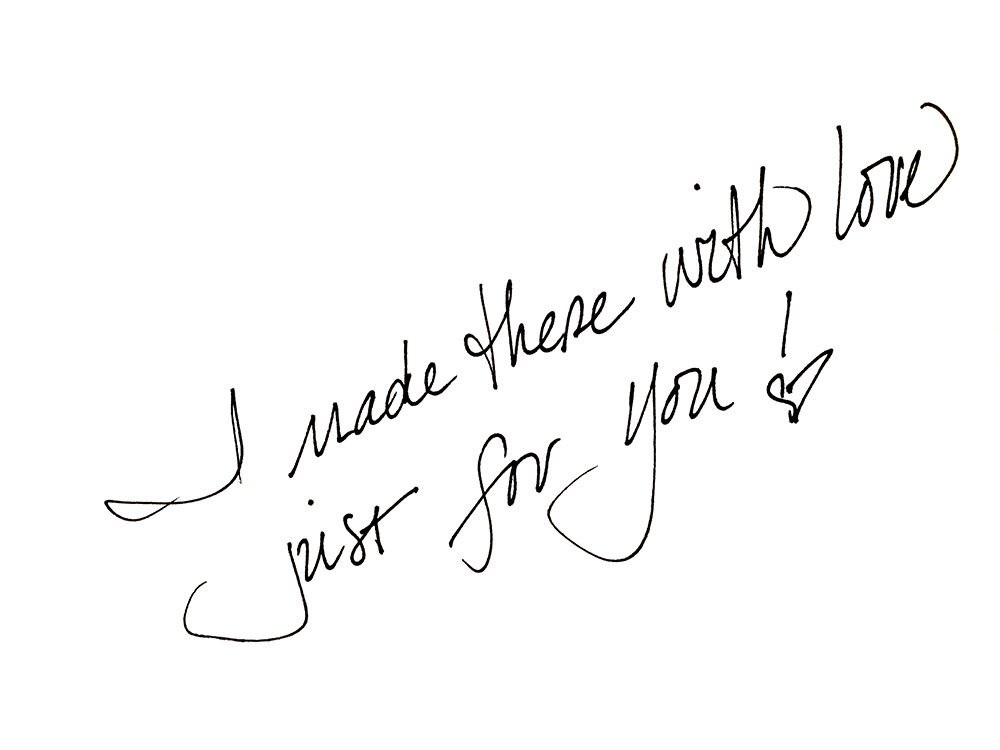 I made these with love
just for you!